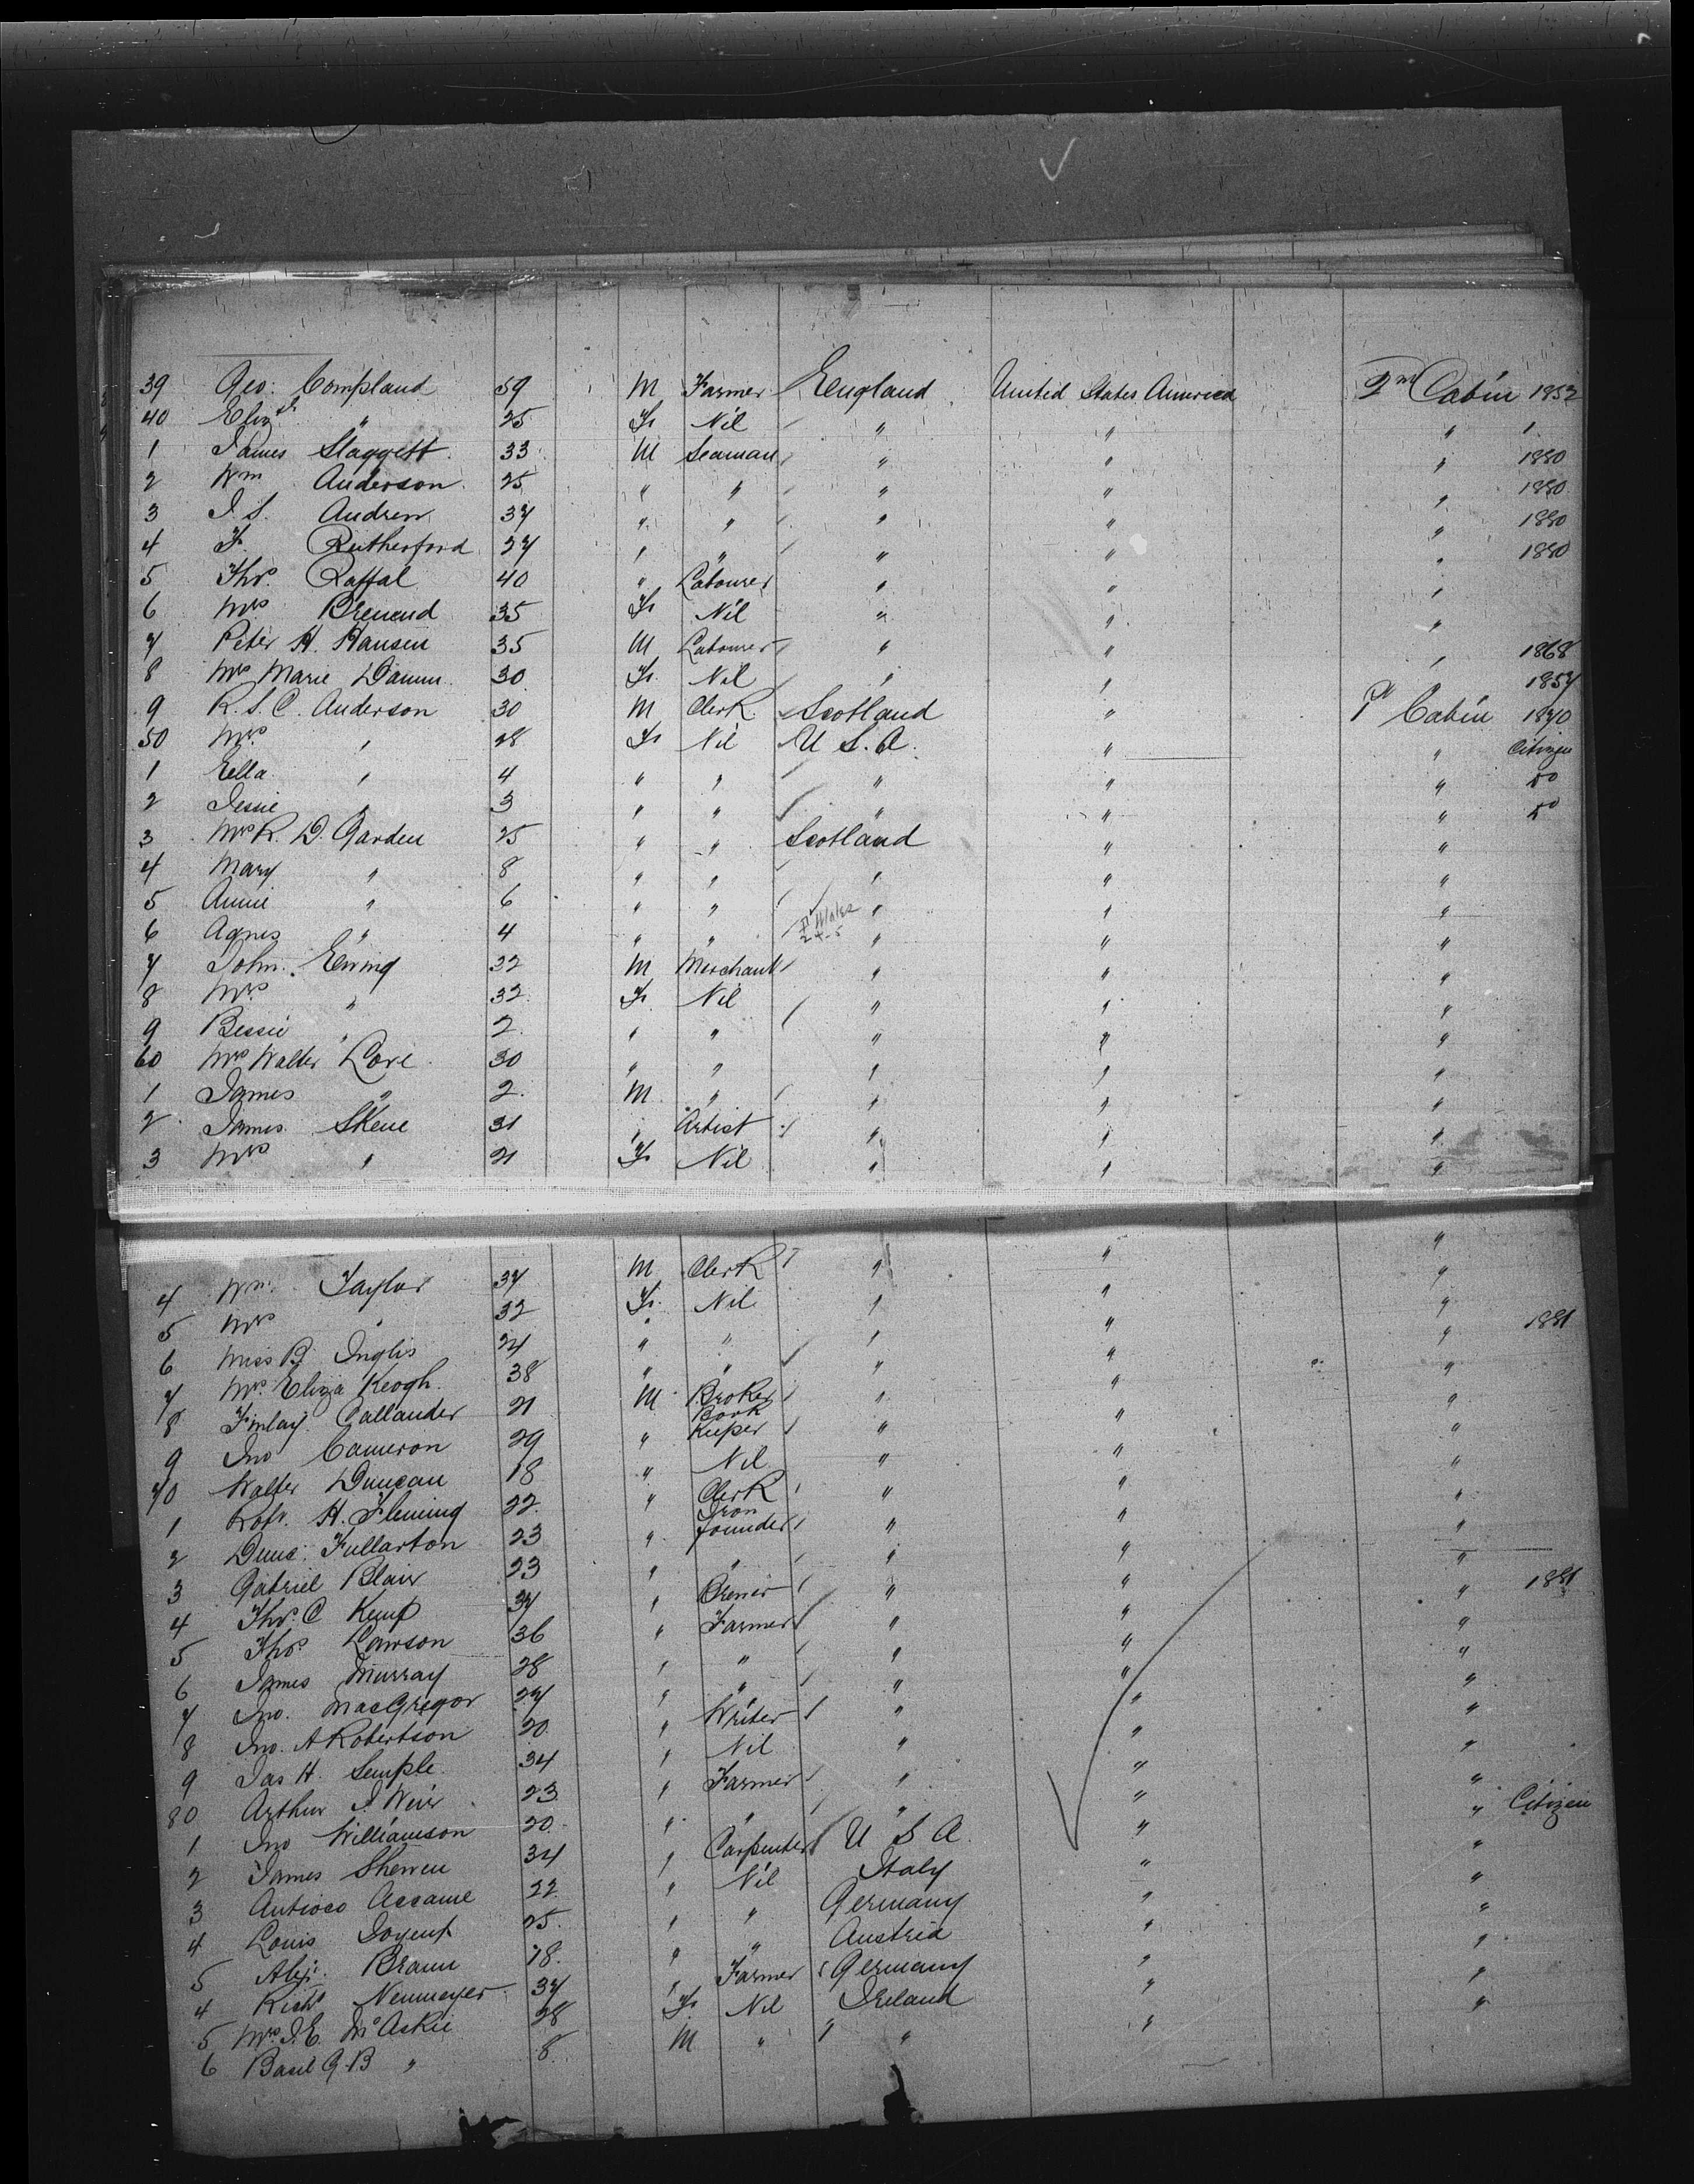 39 Geo: Compland 59 M Farmer England United States America 2nd Cabin 1852
40 Elizth " 25 F Nil " " " 1
1 James Slaggett 33 M Seaman " " " 1880
2 Wm Anderson 25 " " " " " 1880
3 J. S. Andrew 37 " " " " " 1880
4 F. Rutherford 27 " " " " " 1880
5 Thos. Raffal 40 " Labourer " " "
6 Mrs 35 F Nil " " "
7 Peter H. Hansen 35 M Labourer " " " 1868
8 Mrs Marie Damm 30 F Nil " " " 1857
9 R. S. C. Anderson 30 M Clerk Scotland " 1st Cabin 1870
50 Mrs " 28 F Nil U. S. A. " " Citizen
1 Ella " 4 " " " " " Do
2 Jessie " 3 " " " " " Do
3 Mrs R. D. Garden 25 " " Scotland " "
4 Mary " 8 " " " " "
5 Annie " 6 " " " " "
6 Agnes " 4 " " " " "
7 John Ewing 32 M Merchant " " "
8 Mrs " 32 F Nil " " "
9 Bessie " 2 " " " " "
60 Mrs Walter Love 30 " " " " "
1 James " 2 M " " " "
2 James Skene 31 " Artist " " "
3 Mrs " 21 F Nil " " "
4 Wm. Taylor 37 M Clerk " " "
5 Mrs " 32 F Nil " " "
6 Miss B. Inglis 24 " " " " " 1881
7 Mrs. Eliza Keogh 38 " " " " "
8 Finlay Callander 21 M Broker " " "
9 Jno Cameron 29 " Book Keeper " " "
70 Walter Duncan 18 " Nil " " "
1 Robt. H. Fleming 22 " Clerk " " "
2 Dunc. Fullarton 23 " Iron founder " " "
3 Gabriel Blair 23 " " " " "
4 Thos. C Kemp 37 " Brewer " " " 1881
5 Thos Lawson 36 " Farmer " " "
6 James Murray 28 " " " " "
7 Jno. MacGregor 27 " " " " "
8 Jno. A Robertson 20 " Writer " " "
9 Jas H. Semple 34 " Nil " " "
80 Arthur J. Weir 23 " Farmer " " "
1 Jno Williamson 20 " " " " "
2 James Sherren 34 " Carpenter U S A " " Citizen
3 Antioco Accame 22 " Nil Italy " "
4 Louis 25 " " Germany " "
5 Braun 18 " " Austria " "
4 Richd Neumeyer 37 " Farmer Germany " "
5 Mrs. J. E. McAskie 28 F Nil Ireland " "
6 Basil G. B " 8 M " " " "